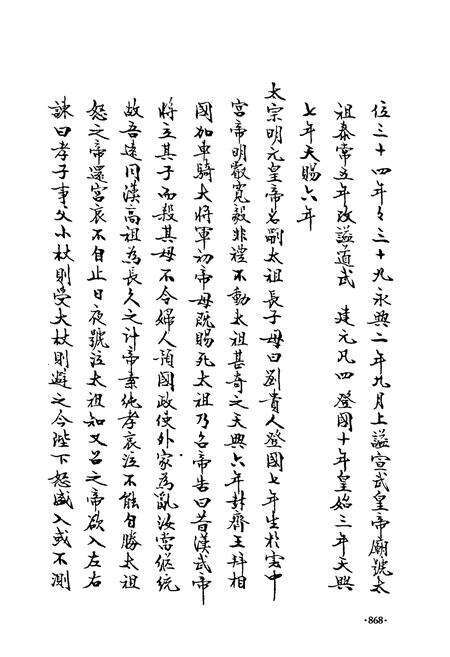 位三十四年年三十九永興二年九月上謚宣武皇帝廟號太
祖泰常五年改謚道武　建元凡四登國十年皇始三年天興
七年天賜六年
太宗明元皇帝名嗣太祖長子母曰劉貴人登國七年生於雲中
宮帝明叡寬毅非禮不動太祖甚奇之天興六年封齊王拜相
國加車騎大將軍初帝母既賜死太祖乃召帝告曰昔漢武帝
將立其子而殺其母不令婦人預國政使外家為亂汝當繼統
故吾遠同漢高祖為長久之計帝素純孝哀泣不能自勝太祖
怒之帝還宮哀不自止日夜號泣太祖知又召之帝欲入左右
諫曰孝子事父小杖則受大杖則避之今陛下怒盛入或不測
·868·